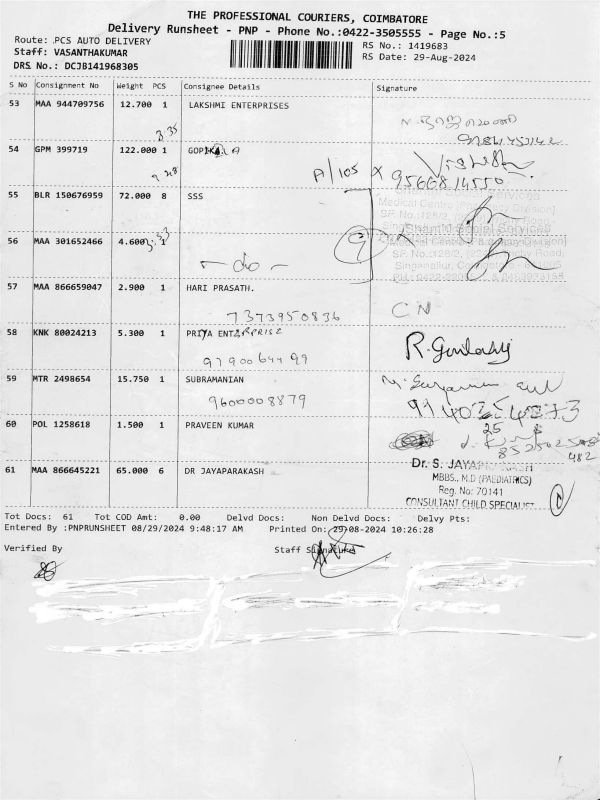 THE PROFESSIONAL COURIERS, COIMBATORE
Delivery Runsheet - PNP - Phone No.:0422-3505555 - Page No.:5
Route: .PCS AUTO DELIVERY
RS No.: 1419683
Staff: VASANTHAKUMAR
RS Date: 29-Aug-2024
DRS No.: DCJB141968305
S No Consignment No Weight PCS Consignee Details Signature
53 MAA 944709756 12.700 1 LAKSHMI ENTERPRISES
3.35
54 GPM 399719 122.000 1 GOPIKA
A/105 x
9566814550
55 BLR 150676959 72.000 8 SSS
Medical Centre [Pharmacy Division]
SF. No.:128/2,
9
56 MAA 301652466 4.600 1
- do -
57 MAA 866659047 2.900 1 HARI PRASATH.
7373950836
CN
58 KNK 80024213 5.300 1 PRIYA ENTERPRISE
9790064499
R.
59 MTR 2498654 15.750 1 SUBRAMANIAN
9600008879
60 POL 1258618 1.500 1 PRAVEEN KUMAR
61 MAA 866645221 65.000 6 DR JAYAPARAKASH
Dr. S. JAYAPRAKASH
MBBS., M.D (PAEDIATRICS)
Reg. No: 70141
CONSULTANT CHILD SPECIALIST
Tot Docs: 61 Tot COD Amt: 0.00 Delvd Docs: Non Delvd Docs: Delvy Pts:
Entered By :PNPRUNSHEET 08/29/2024 9:48:17 AM Printed On: 29-08-2024 10:26:28
Verified By
Staff Signature